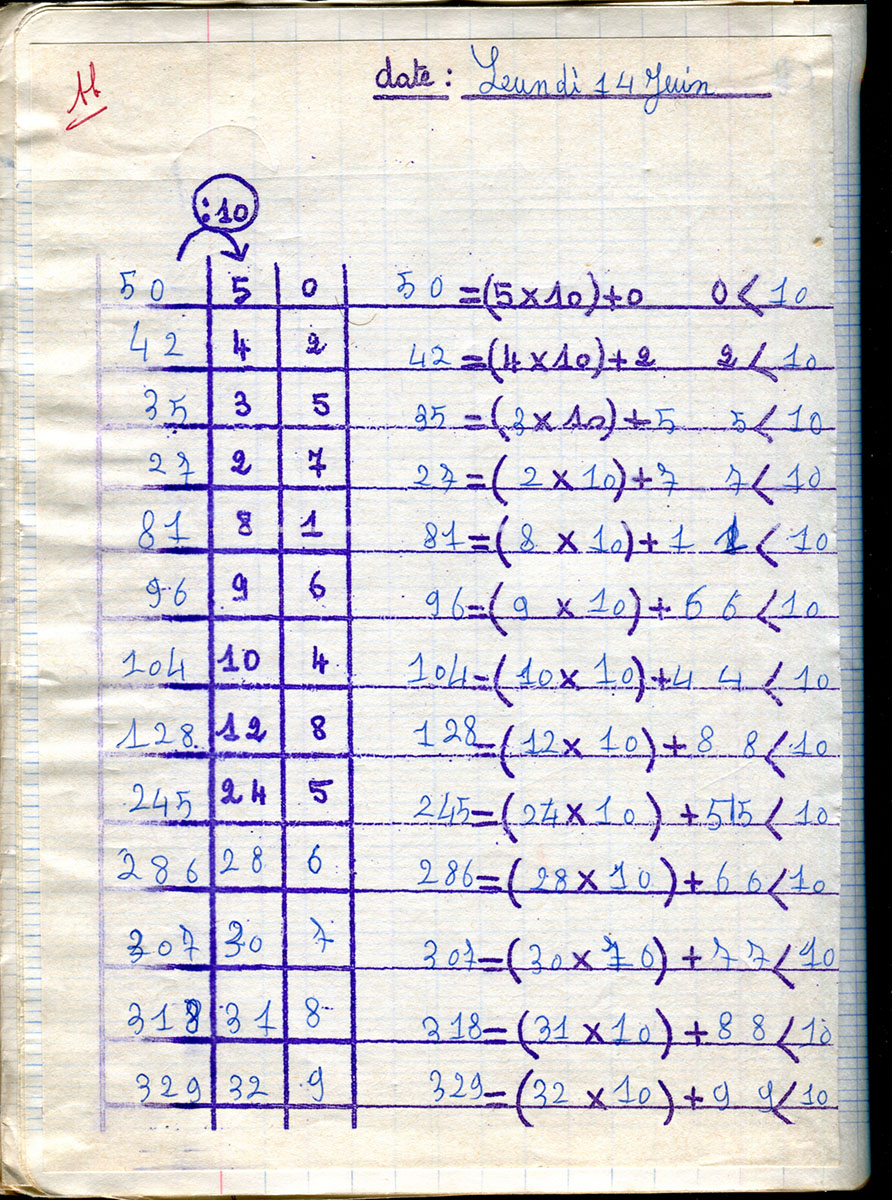 date: Leundi 14 Juin
:10
50 5 0 50=(5×10)+0 0<10
42 4 2 42=(4×10)+2 2<10
35 3 5 35=(3×10)+5 5<10
27 2 7 27=(2×10)+7 7<10
81 8 1 81=(8×10)+1 1<10
96 9 6 96=(9×10)+6 6<10
104 10 4 104=(10×10)+4 4<10
128 12 8 128=(12×10)+8 8<10
245 24 5 245=(24×10)+5 5<10
286 28 6 286=(28×10)+6 6<10
307 30 7 307=(30×10)+7 7<10
318 31 8 318=(31×10)+8 8<10
329 32 9 329=(32×10)+9 9<10